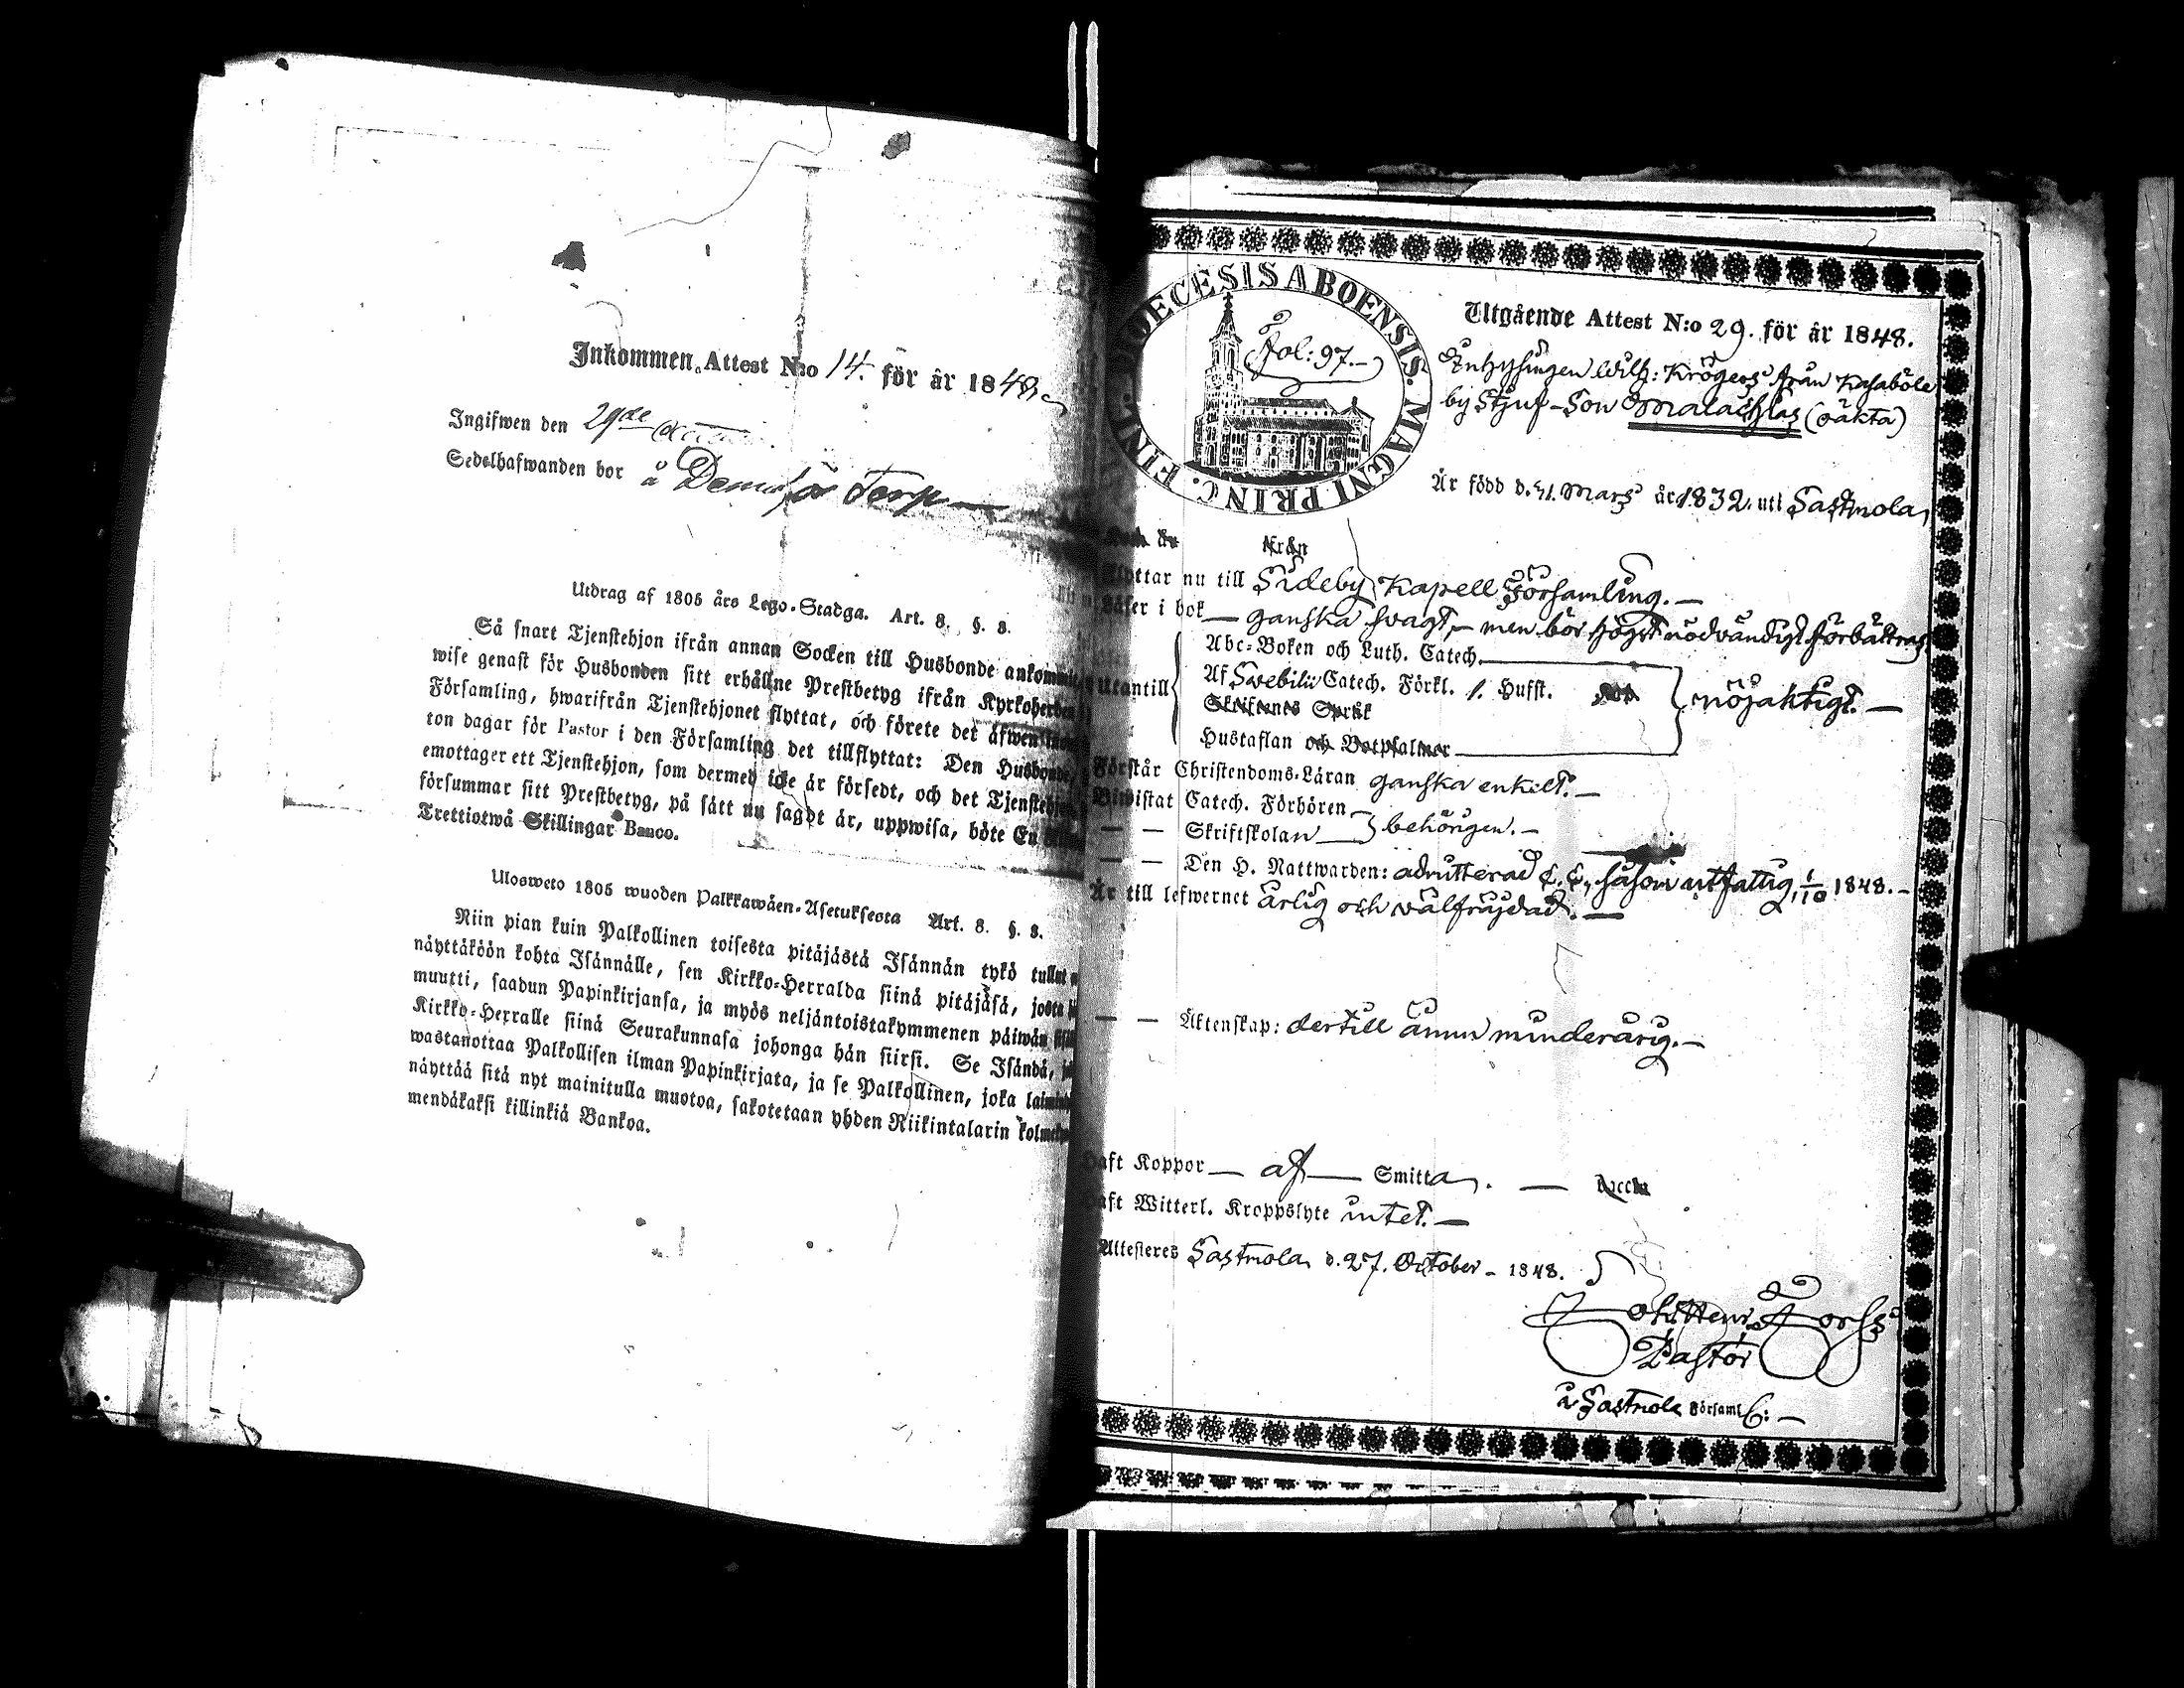 Inkommen Attest N:o 14. för år 1848.
Ingifwen den 29de
Sedelhafwanden bor å Torp
Utdrag af 1805 års Lego-Stadga. Art. 8. §. 8.
Så snart Tjenstehjon ifrån annan Socken till Husbonde
wise genast för Husbonden sitt erhållne Prestbetyg ifrån
Församling, hwarifrån Tjenstehjonet flyttat, och förete det
ton dagar för Pastor i den Församling det tillflyttat: Den
emottager ett Tjenstehjon, som dermed icke är försedt, och det
försummar sitt Prestbetyg, på sätt nu sagdt är, uppwisa, böte En
Trettiotwå Skillingar Banco.
Ulosweto 1805 wuoden Palkkawäen-Asetuksesta Art. 8. §. 8.
Niin pian kuin Palkollinen toisesta pitäjästä Isännän tykö tullut
näyttäköön kohta Isännälle, sen Kirkko-Herralda siinä pitäjäsä, josta
muutti, saadun Papinkirjansa, ja myös neljäntoistakymmenen päiwän
Kirkko-Herralle siinä Seurakunnasa johonga hän siirsi. Se Isändä,
wastanottaa Palkollisen ilman Papinkirjata, ja se Palkollinen, joka
näyttää sitä nyt mainitulla muotoa, sakotetaan yhden Riikintalarin
mendäkaksi killinkiä Bankoa.
DIOECESIS ABOENSIS. MAGNI PRINC. FINL.
Fol: 97.
Utgående Attest N:o 29. för år 1848.
Enhysingen Wilh: Krögers från Kasaböle
by Stjuf-Son Malachias (oäkta)
Är född d. Mars år 1832. uti Sastmola
från
Flyttar nu till Sideby Kapell Församling.
Läser i bok ganska svagt, men bör högst nödvändigt förbättras
Abc-Boken och Luth. Catech.
Utantill Af Svebilii Catech. Förkl. 1. Hufst. nöjaktigt.
Skriftenes Språk
Hustaflan och Botpsalmer
Förstår Christendoms-Läran ganska enkelt.
Biwistat Catech. Förhören
— — Skriftskolan behörigen.
— — Den H. Nattwarden: admitterad såsom utfattig, 1/10 1848.
Är till lefwernet ärlig och välfräjdad.
— — Äktenskap: dertill ännu minderårig.
Haft Koppor — af — Smitta. — Vaccin
Haft Witterl. Kroppslyte intet.
Attesteres Sastmola d. 27. October 1848.
Joh: Henr: Forss
Pastor
i Sastmola Församl: